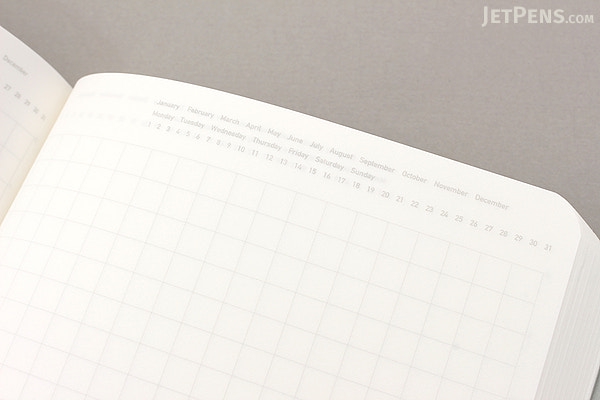 JETPENS.COM
December
27 28 29 30 31
January February March April May June July August September October November December
Monday Tuesday Wednesday Thursday Friday Saturday Sunday
1 2 3 4 5 6 7 8 9 10 11 12 13 14 15 16 17 18 19 20 21 22 23 24 25 26 27 28 29 30 31